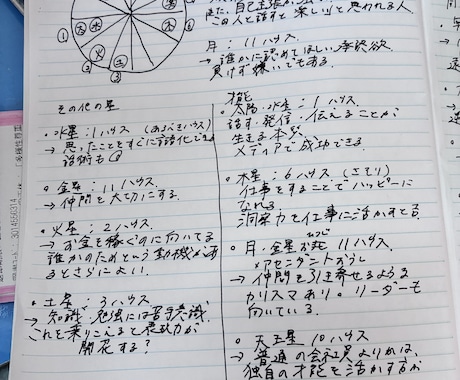 この人と話すと楽しいと思われる人
月：11ハウス
→ 誰かに認めてほしい承認欲
負けず嫌いでもある。
その他の星
・水星：1ハウス
→ 思ったことをすぐに言語化できる
話術も◎
・金星：11ハウス
→ 仲間を大切にする。
・火星：2ハウス
→ お金を稼ぐのに向いてる
誰かのためという動機がある
とさらによい。
・土星：3ハウス
→ 知識、勉強には苦手意識、
これを乗りこえると
開花する？
才能
・太陽・水星：1ハウス
話す・発信・伝えることが
生きる本質
メディアで成功できる。
・木星：6ハウス（さそり）
仕事をすることでハッピーに
なれる
洞察力を仕事に活かすとる
・月・金星 11ハウス
→ 仲間を引き寄せるような
カリスマあり。リーダーも
向いている。
・天王星 10ハウス
→ 普通の会社員よりかは、
独自の才能を活かすが